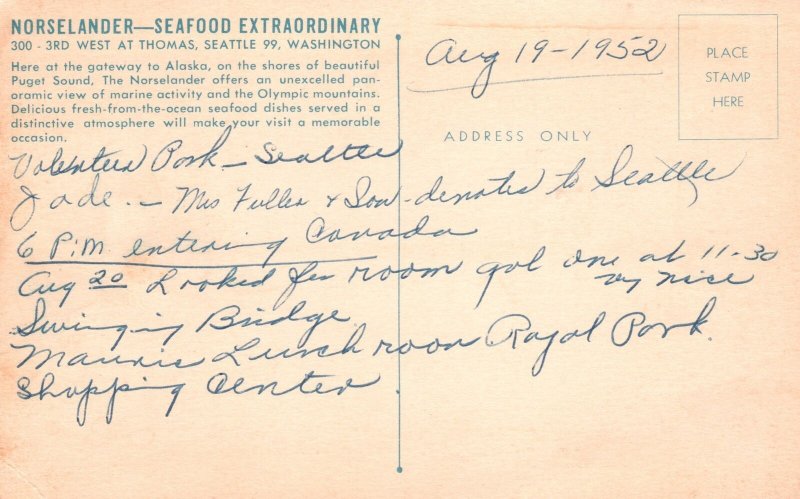 NORSELANDER—SEAFOOD EXTRAORDINARY
300 - 3RD WEST AT THOMAS, SEATTLE 99, WASHINGTON
Here at the gateway to Alaska, on the shores of beautiful
Puget Sound, The Norselander offers an unexcelled pan-
oramic view of marine activity and the Olympic mountains.
Delicious fresh-from-the-ocean seafood dishes served in a
distinctive atmosphere will make your visit a memorable
occasion.
Aug 19-1952
PLACE
STAMP
HERE
ADDRESS ONLY
Park - Seattle
Jade. - Mrs Fuller & Son - donated to Seattle
6 P.M. entering Canada
Aug 20 Looked for room got one at 11-30
vy nice
Swinging Bridge
Lunch room Royal Park.
Shopping Center.